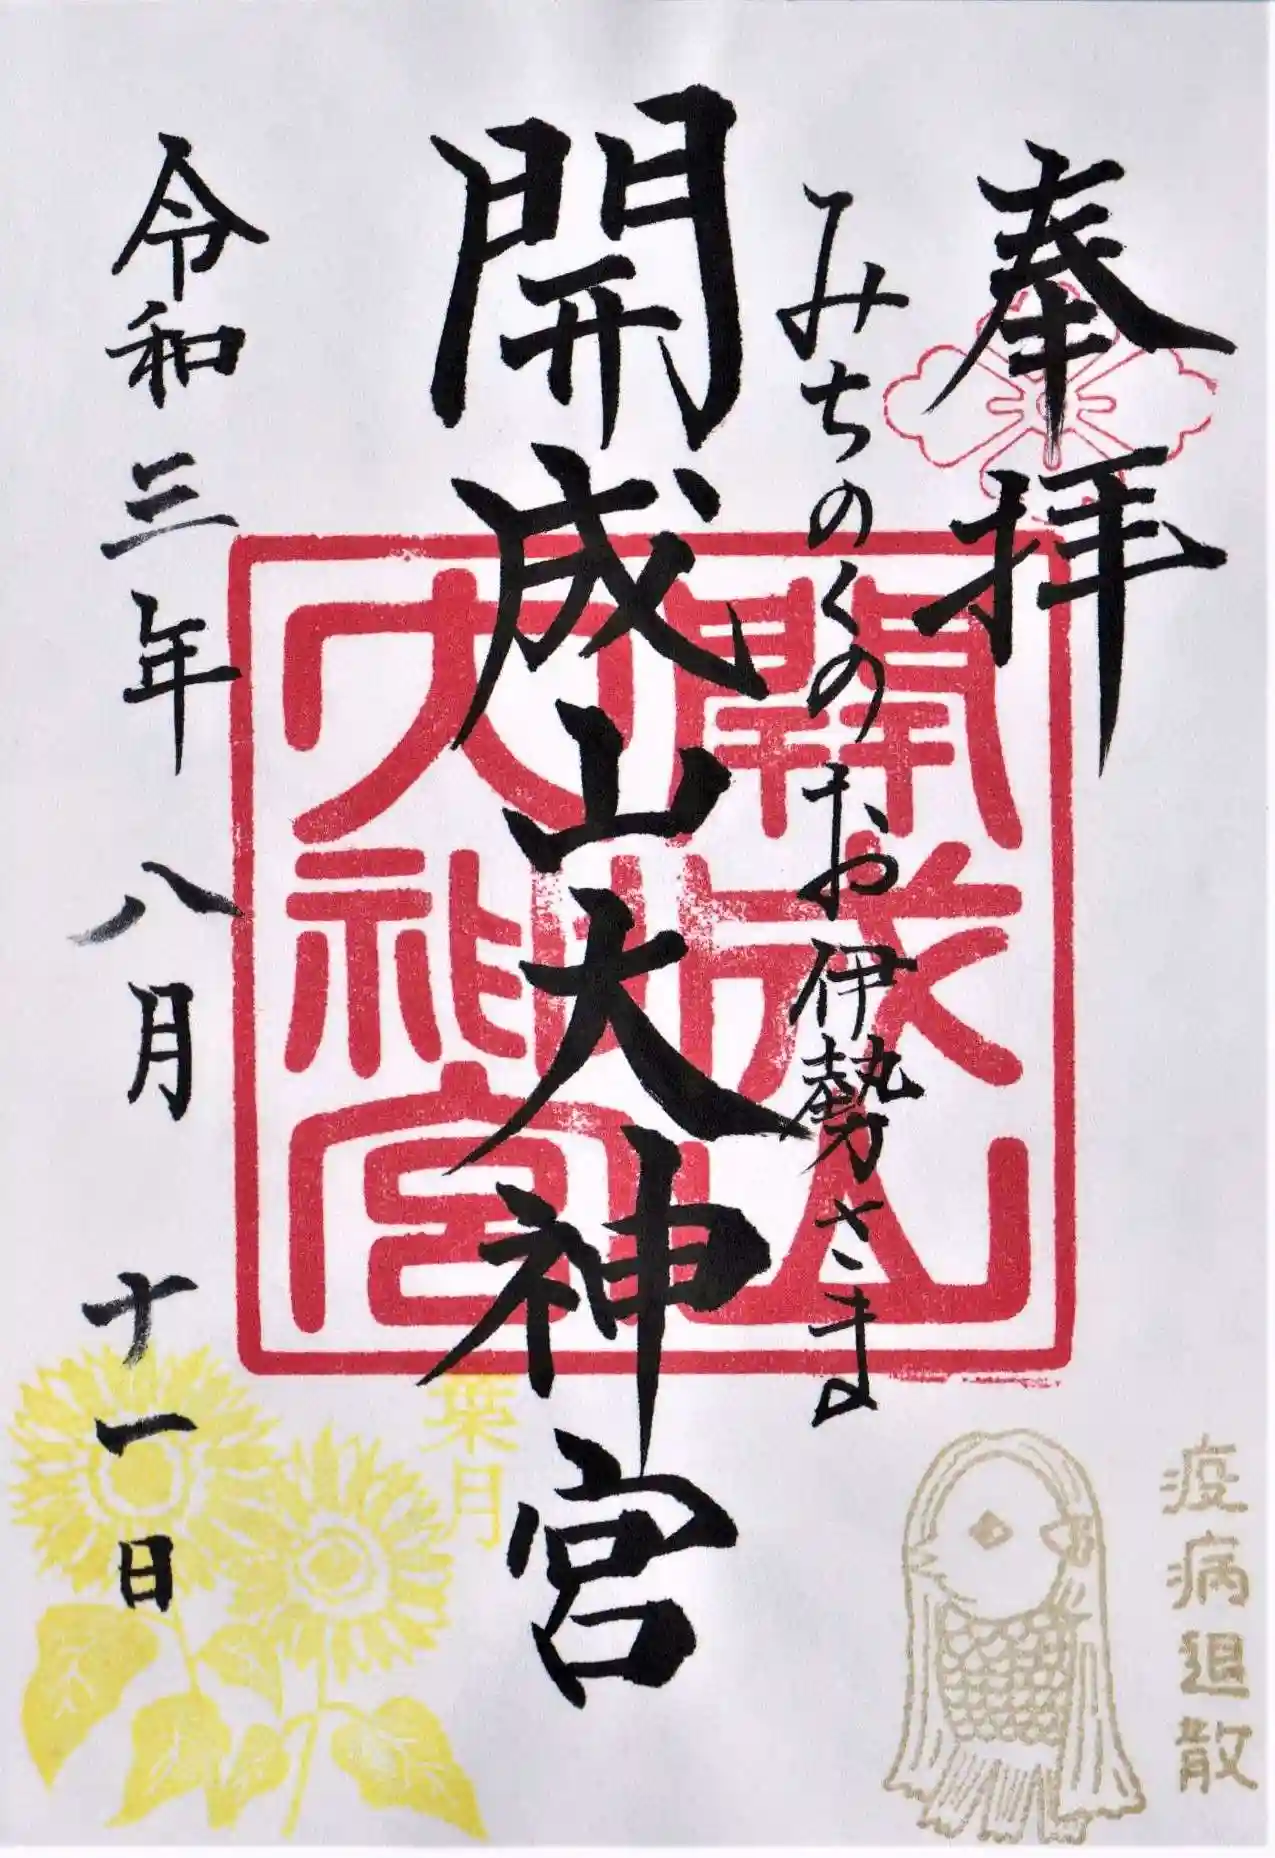 奉拝
みちのくのお伊勢さま
開成山大神宮
開成山
大神宮
令和三年八月十一日
葉月
疫病退散